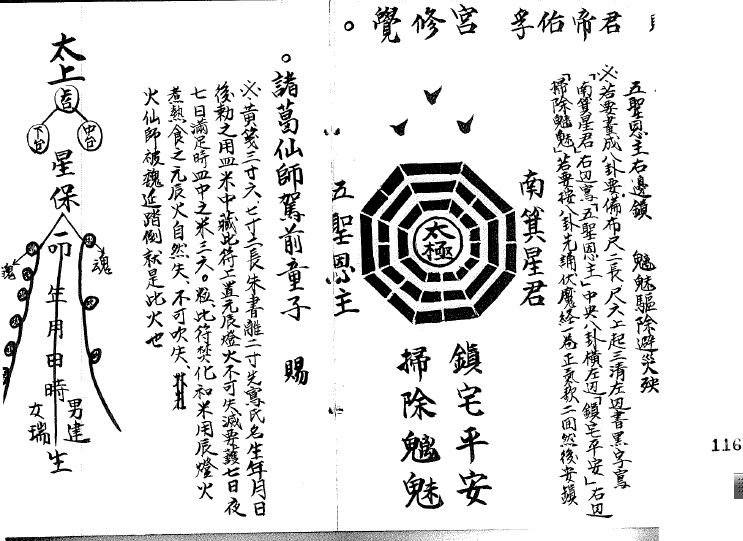 覺修宮 孚佑帝君
五聖恩主右邊鎮 魑魅驅除避災殃
※若要畫成八卦要備布尺二長尺六上起三清左边書黑字寫
「南箕星君」右边寫「五聖恩主」中央八卦橫左边「鎮宅平安」右边
「掃除魑魅」若要按八卦先誦伏魔經一卷正氣歌二回然後安鎮
南箕星君
太極
五聖恩主
鎮宅平安
掃除魑魅
。諸葛仙師駕前童子 賜
※黃箋三寸六、七寸二長朱書離二寸先寫氏名生年月日
後勅之用皿米中藏此符上置元辰燈火不可失滅要該七日夜
七日滿足時皿中之米三六。粒此符焚化和米用辰燈火
煮熟食之元辰火自然失、不可吹失、
火仙師被魏延踏倒就是此火也
太上
上台
中台
下台
星保
一命
魂
魂
年月日時
男達
女瑞
生
116